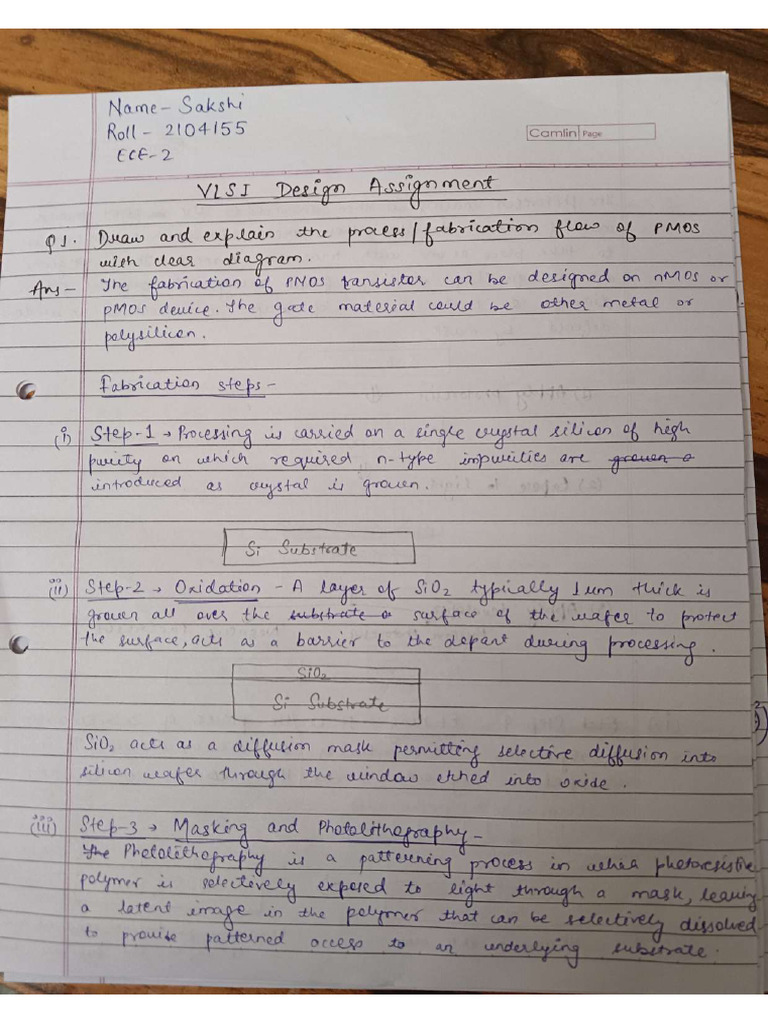 Name - Sakshi
Roll - 2104155
ECE-2
Camlin Page
VLSI Design Assignment
Q1. Draw and explain the process/fabrication flow of PMOS
with clear diagram.
Ans - The fabrication of PMOS transistor can be designed on nMOS or
pMOS device. The gate material could be other metal or
polysilicon.
Fabrication steps -
(i) Step-1 → Processing is carried on a single crystal silicon of high
purity on which required n-type impurities are grown
introduced as crystal is grown.
Si Substrate
(ii) Step-2 → Oxidation - A layer of SiO2 typically 1um thick is
grown all over the substrate surface of the wafer to protect
the surface, acts as a barrier to the dopant during processing.
SiO2
Si Substrate
SiO2 acts as a diffusion mask permitting selective diffusion into
silicon wafer through the window etched into oxide.
(iii) Step-3 → Masking and Photolithography -
The Photolithography is a patterning process in which photoresistive
polymer is selectively exposed to light through a mask, leaving
a latent image in the polymer that can be selectively dissolved
to provide patterned access to an underlying substrate.